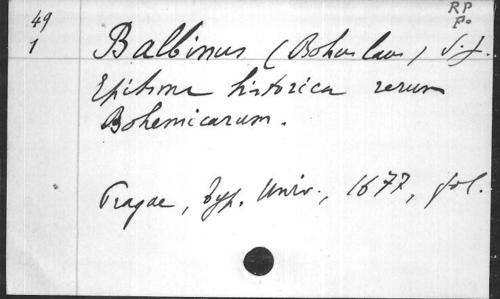 49
1
RP
Po
Balbinus (Bohuslaus) S. J.
Epitome historica rerum
Bohemicarum.
Pragae, typ. Univ., 1677, fol.